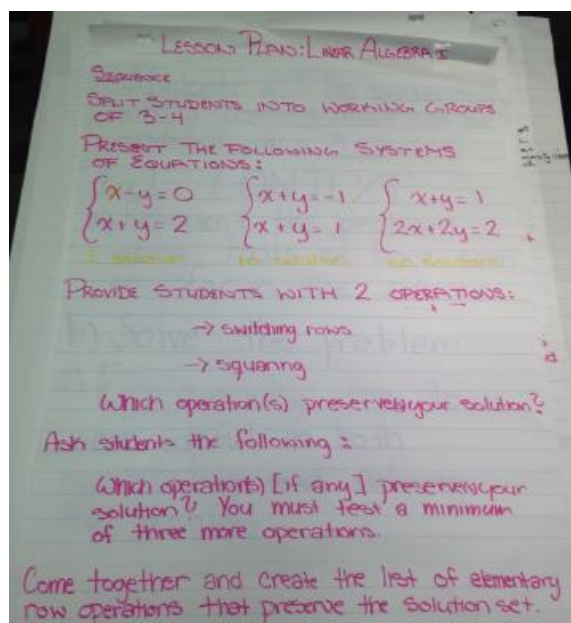 LESSON PLAN: LINEAR ALGEBRA I
SEQUENCE
SPLIT STUDENTS INTO WORKING GROUPS
OF 3-4
PRESENT THE FOLLOWING SYSTEMS
OF EQUATIONS:
{x-y=0 {x+y=-1 { x+y=1
{x+y=2 {x+y=1 {2x+2y=2
1 solution no solution ∞ solutions
PROVIDE STUDENTS WITH 2 OPERATIONS:
→ switching rows
→ squaring
Which operation(s) preserve(s) your solution?
Ask students the following:
Which operation(s) [if any] preserve(s) your
solution? You must test a minimum
of three more operations.
Come together and create the list of elementary
row operations that preserve the solution set.